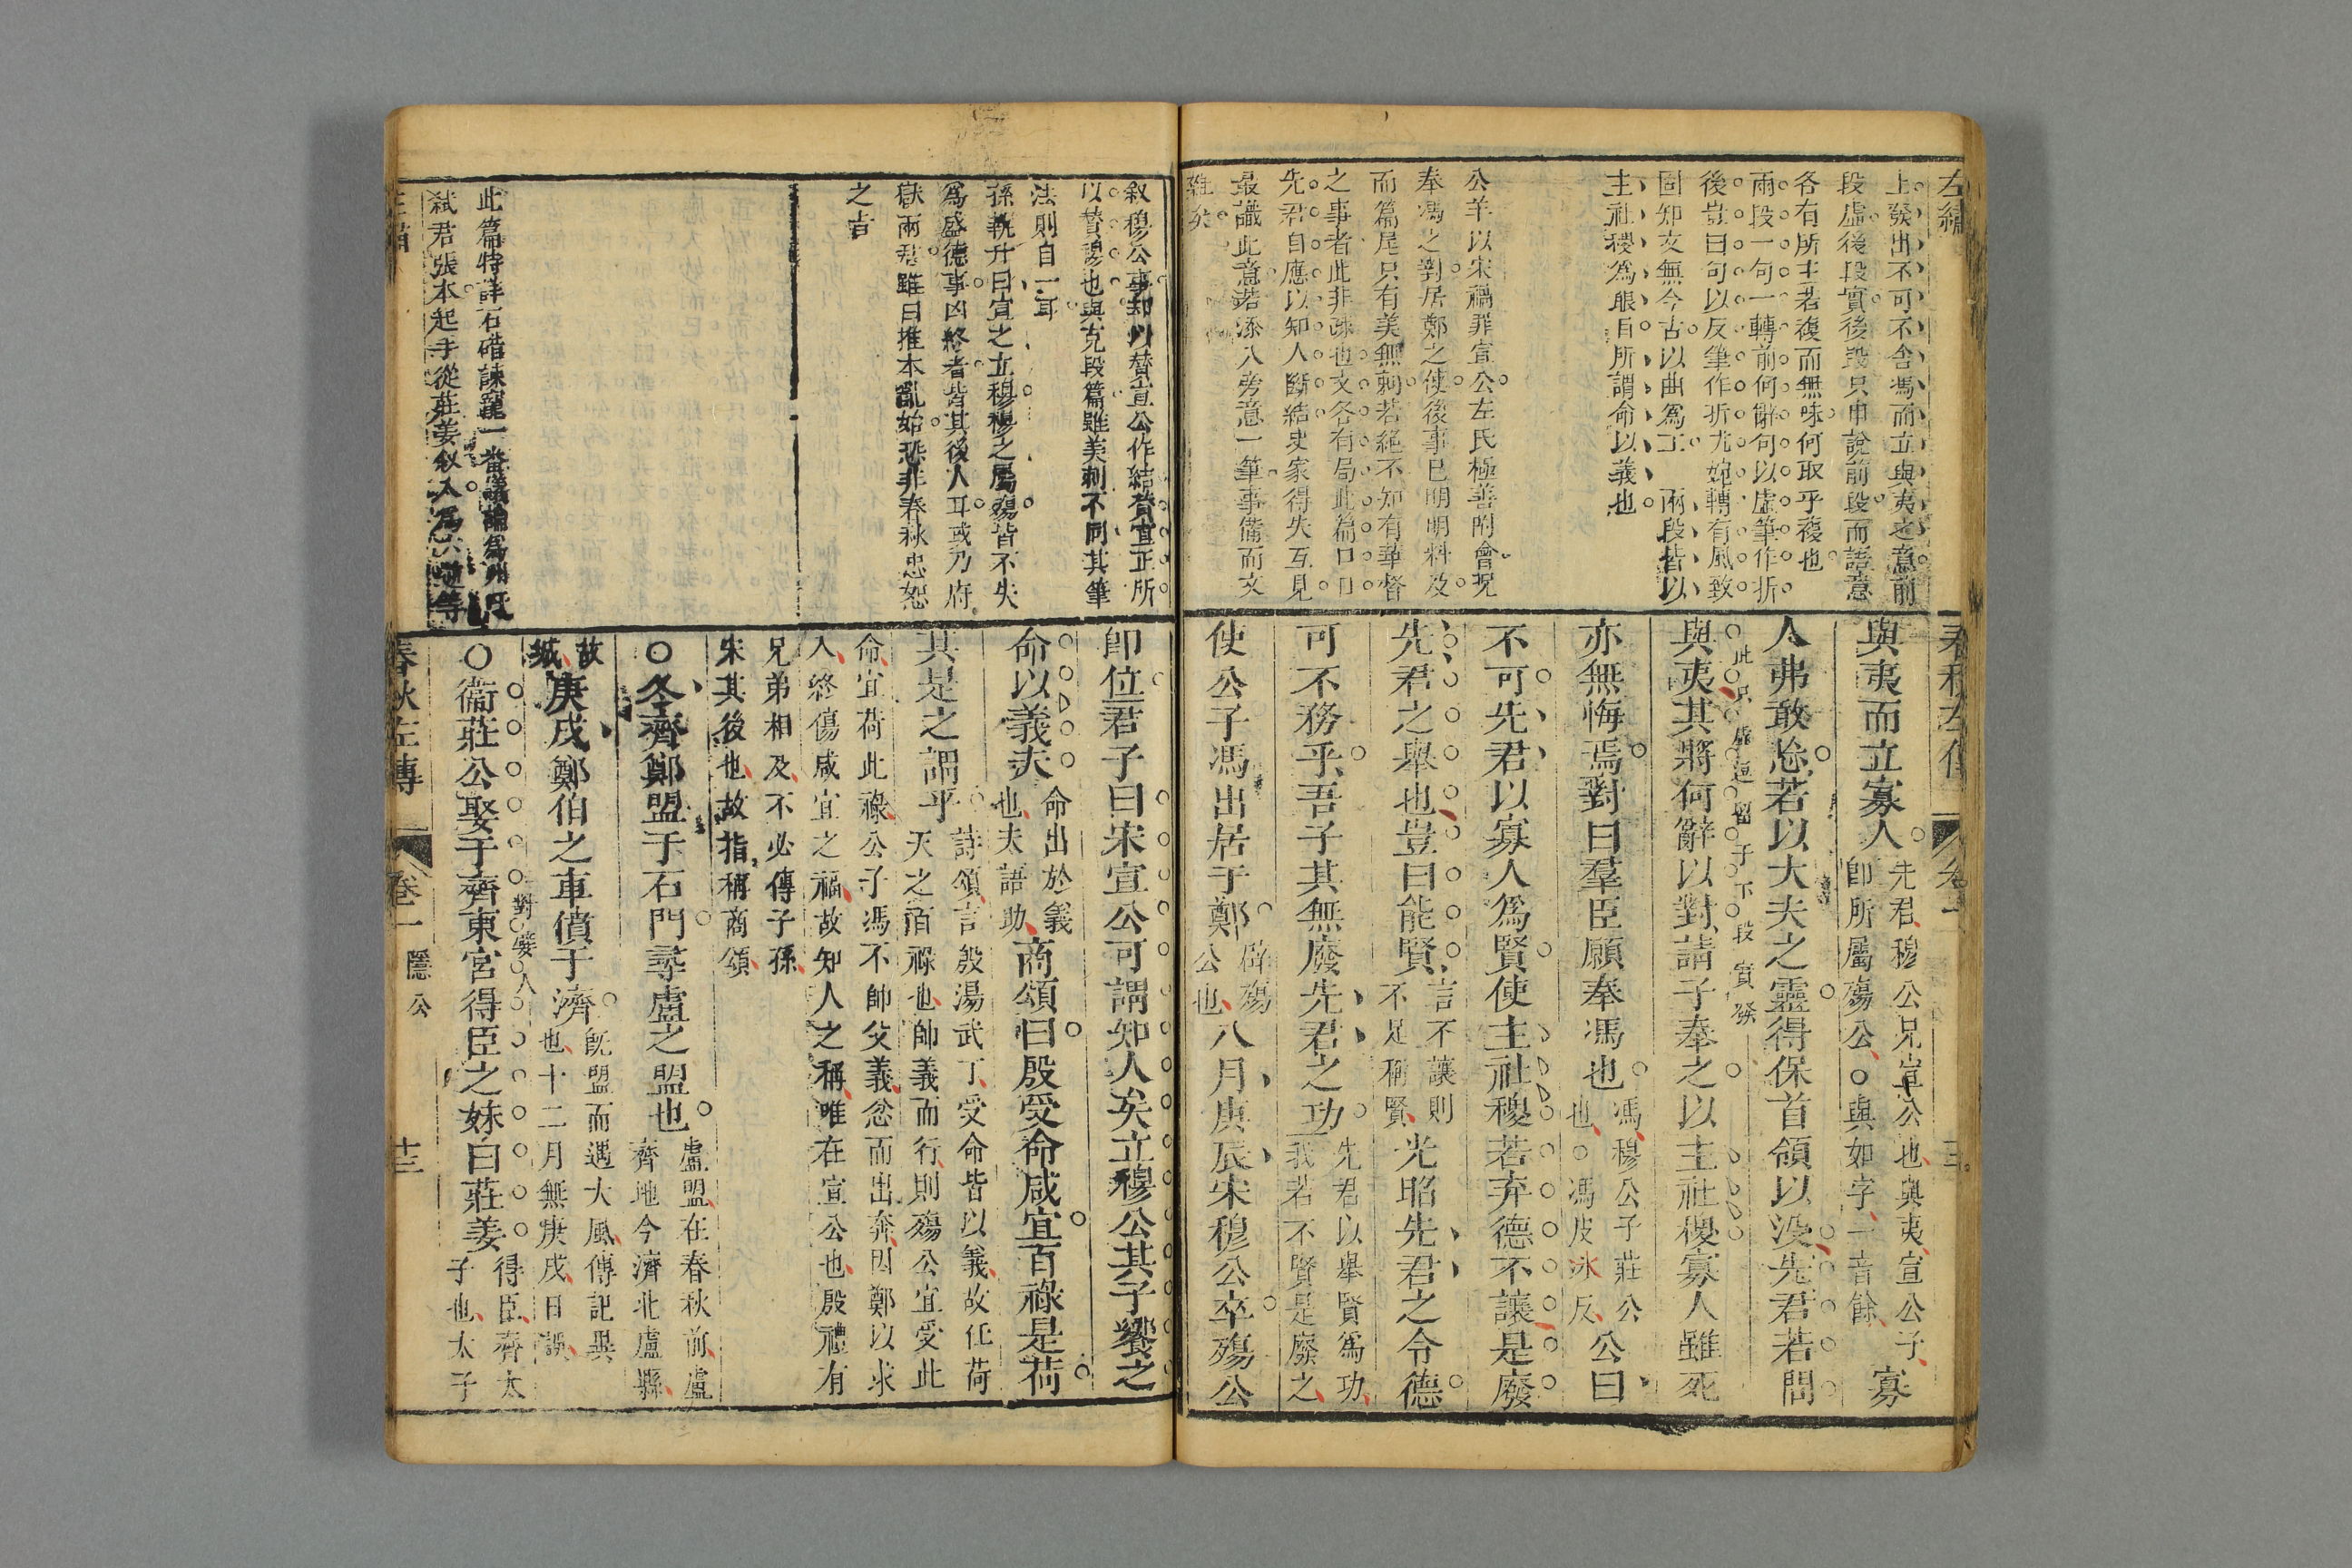 左繡
上發出不可不舍馮而立與夷之意前
段虛後段實後段只申說前段而語意
各有所主若複而無味何取乎複也
兩段一句一轉前何辭句以虛筆作折
後豈曰句以反筆作折尤婉轉有風致
固知文無今古以曲爲工 兩段皆以
主社稷爲眼目所謂命以義也
公羊以宋禍罪宣公左氏極善附會況
奉馮之對居鄭之使後事已明明料及
而篇尾只有美無刺若絕不知有華督
之事者此非疎也文各有局此篇口口
先君自應以知人斷結史家得失互見
最識此意若添入旁意一筆事備而文
雜矣
春秋左傳
卷一
與夷而立寡人
先君穆公兄宣公也與夷宣公子
卽所屬殤公○與如字一音餘
寡
人弗敢忘若以大夫之靈得保首領以没先君若問
此只虛逗留于下段實發
與夷其將何辭以對請子奉之以主社稷寡人雖死
亦無悔焉對曰羣臣願奉馮也
馮穆公子莊公
也○馮皮氷反
公曰
不可先君以寡人爲賢使主社稷若弃德不讓是廢
先君之舉也豈曰能賢
言不讓則
不足稱賢
光昭先君之令德
可不務乎吾子其無廢先君之功
先君以舉賢爲功
我若不賢是廢之
使公子馮出居于鄭
辟殤
公也
八月庚辰宋穆公卒殤公
敘穆公事却以贊宣公作結贊宣正所
以贊穆也與克段篇雖美刺不同其筆
法則自一耳
孫執升曰宣之立穆穆之屬殤皆不失
爲盛德事凶終者皆其後人耳或乃府
獄兩君雖曰推本亂始恐非春秋忠恕
之旨
此篇特詳石碏諫寵一番議論爲州吁
弑君張本起手從莊姜敘入爲六逆等
卽位君子曰宋宣公可謂知人矣立穆公其子饗之
命以義夫
命出於義
也夫語助
商頌曰殷受命咸宜百祿是荷
其是之謂乎
詩頌言殷湯武丁受命皆以義故任荷
天之百祿也帥義而行則殤公宜受此
命宜荷此祿公子馮不帥父義忿而出奔因鄭以求
入終傷咸宜之福故知人之稱唯在宣公也殷禮有
兄弟相及不必傳子孫
宋其後也故指稱商頌
○冬齊鄭盟于石門尋盧之盟也
盧盟在春秋前盧
齊地今濟北盧縣
故
城
庚戌鄭伯之車僨于濟
旣盟而遇大風傳記異
也十二月無庚戌日誤
對嬖人
○衞莊公娶于齊東宮得臣之妹曰莊姜
得臣齊太
子也太子
春秋左傳
卷一
隱公